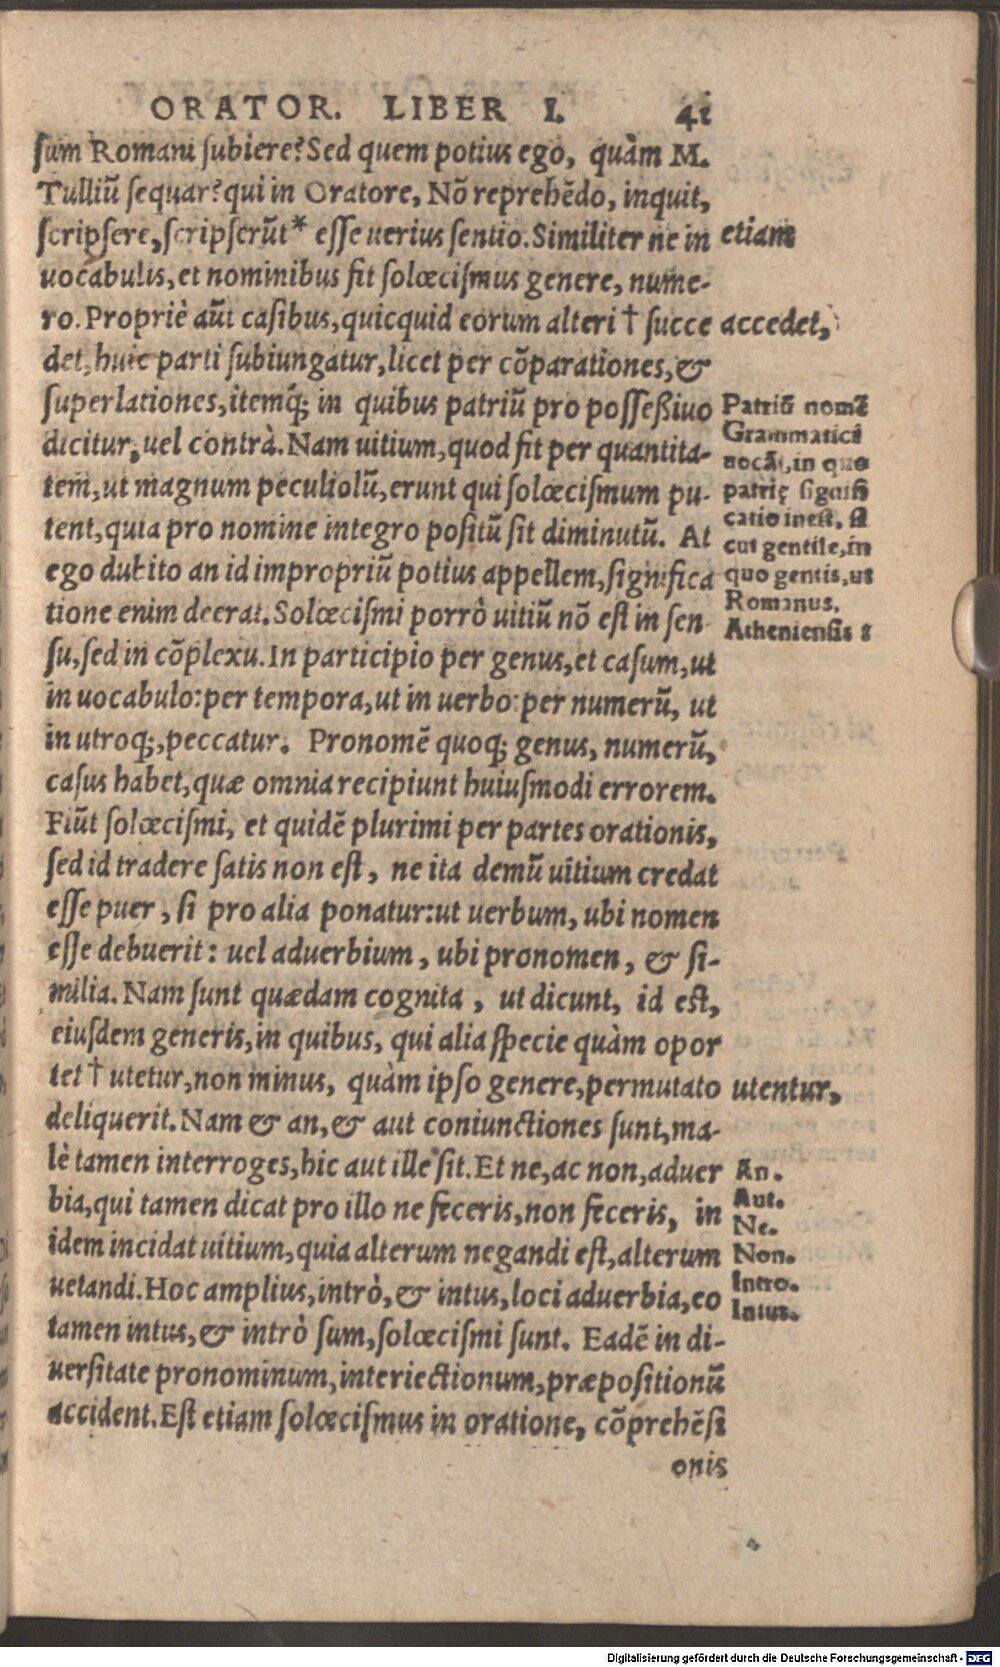 ORATOR. LIBER I. 41
sum Romani subiere? Sed quem potius ego, quàm M.
Tulliū sequar? qui in Oratore, Nō reprehēdo, inquit,
scripsere, scripserūt* esse uerius sentio. Similiter ne in
uocabulis, et nominibus fit solœcismus genere, nume-
ro. Propriè aūt casibus, quicquid eorum alteri † succe
det, huic parti subiungatur, licet per cōparationes, &
superlationes, itemq́; in quibus patriū pro possessiuo
dicitur, uel contrà. Nam uitium, quod fit per quantita-
tem, ut magnum peculiolū, erunt qui solœcismum pu-
tent, quia pro nomine integro positū sit diminutū. At
ego dubito an id impropriū potius appellem, significa
tione enim deerat. Solœcismi porrò uitiū nō est in sen
su, sed in cōplexu. In participio per genus, et casum, ut
in uocabulo: per tempora, ut in uerbo: per numerū, ut
in utroq;, peccatur. Pronomē quoq; genus, numerū,
casus habet, quæ omnia recipiunt huiusmodi errorem.
Fiūt solœcismi, et quidē plurimi per partes orationis,
sed id tradere satis non est, ne ita demū uitium credat
esse puer, si pro alia ponatur: ut uerbum, ubi nomen
esse debuerit: uel aduerbium, ubi pronomen, & si-
milia. Nam sunt quædam cognita, ut dicunt, id est,
eiusdem generis, in quibus, qui alia specie quàm opor
tet † utetur, non minus, quàm ipso genere, permutato
deliquerit. Nam & an, & aut coniunctiones sunt, ma-
lè tamen interroges, hic aut ille sit. Et ne, ac non, aduer
bia, qui tamen dicat pro illo ne feceris, non feceris, in
idem incidat uitium, quia alterum negandi est, alterum
uetandi. Hoc amplius, intrò, & intus, loci aduerbia, eo
tamen intus, & intrò sum, solœcismi sunt. Eadē in di-
uersitate pronominum, interiectionum, præpositionū
accident. Est etiam solœcismus in oratione, cōprehēsi
onis
etiam
accedet,
Patriū nomē
Grammatici
uocāt, in quo
patrię signifi
catio inest, si
cut gentile, in
quo gentis, ut
Romanus,
Atheniensis :
utentur,
An.
Aut.
Ne.
Non.
Intro.
Intus.
Digitalisierung gefördert durch die Deutsche Forschungsgemeinschaft - DFG